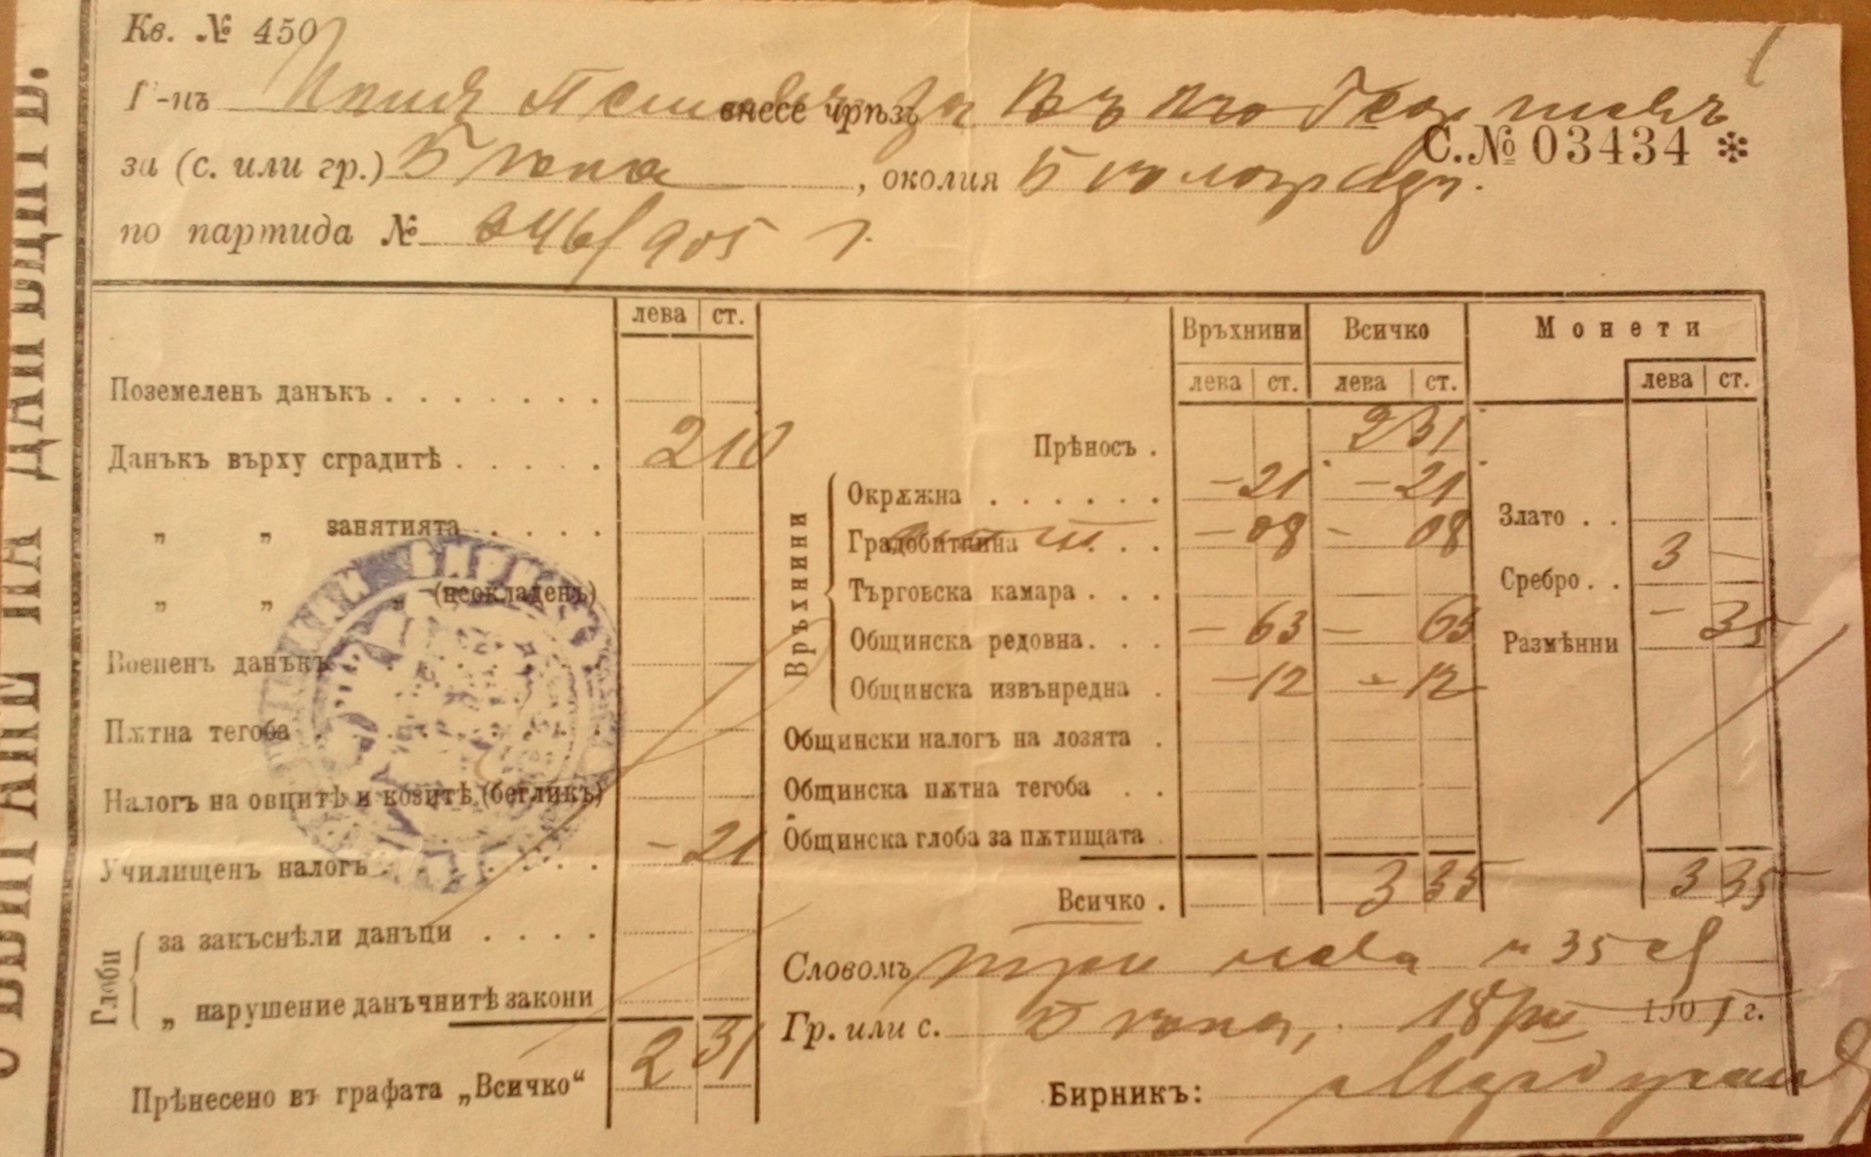 Кв. № 450
Г-нъ Илия внесе чрѣзъ
С. № 03434 *
за (с. или гр.) Бѣла, околия
по партида № 346/905 г.
лева ст.
Поземеленъ данъкъ . . . . . . .
Данъкъ върху сградитѣ . . . . . 2 10
„ „ занятията . . . .
„ „ „ (неокладенъ)
Воененъ данъкъ . . . . . .
Пѫтна тегоба . . . . . .
Налогъ на овцитѣ и козитѣ (бегликъ)
Училищенъ налогъ . . . . . – 21
Глоби
за закъснѣли данъци . . . .
„ нарушение данъчнитѣ закони
Прѣнесено въ графата „Всичко“ 2 31
Връхнини Всичко Монети
лева ст. лева ст. лева ст.
Прѣносъ . 2 31
Връхнини
Окрѫжна . . . . . . – 21 – 21
Градобитнина . . . – 08 – 08
Търговска камара . . .
Общинска редовна . . . – 63 – 63
Общинска извънредна . – 12 – 12
Общински налогъ на лозята .
Общинска пѫтна тегоба . .
Общинска глоба за пѫтищата .
Всичко . 3 35 3 35
Злато . .
Сребро . . 3 –
Размѣнни – 35
Словомъ три лева и 35 ст
Гр. или с. 18 190 г.
Бирникъ: